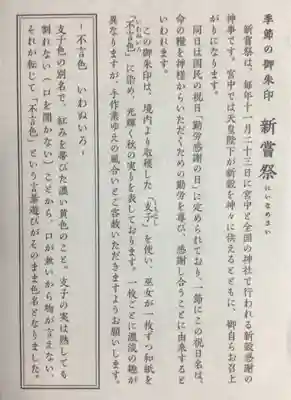 季節の御朱印　新嘗祭
にいなめさい
新嘗祭は、毎年十一月二十三日に宮中と全国の神社で行われる新穀感謝の
神事です。宮中では天皇陛下が新穀を神々に供えるとともに、御自らお召上
がりになります。
同日は国民の祝日「勤労感謝の日」に定められており、一節にこの祝日名は、
命の糧を神様からいただくための勤労を尊び、感謝し合うことに由来すると
いわれます。
この御朱印は、境内より取穫した「支子」を使い、巫女が一枚ずつ和紙を
「不言色」に染め、光輝く秋の実りを表しております。一枚ごとに濃淡の趣が
異なりますが、手作業ゆえの風合いとご容赦いただきますようお願いします。
－不言色　いわぬいろ－
支子色の別名で、紅みを帯びた濃い黄色のこと。支子の実は熟しても
割れない（口を開かない）ことから、口が無いから物が言えない、
それが転じて「不言色」という言葉遊びがそのまま色名となりました。